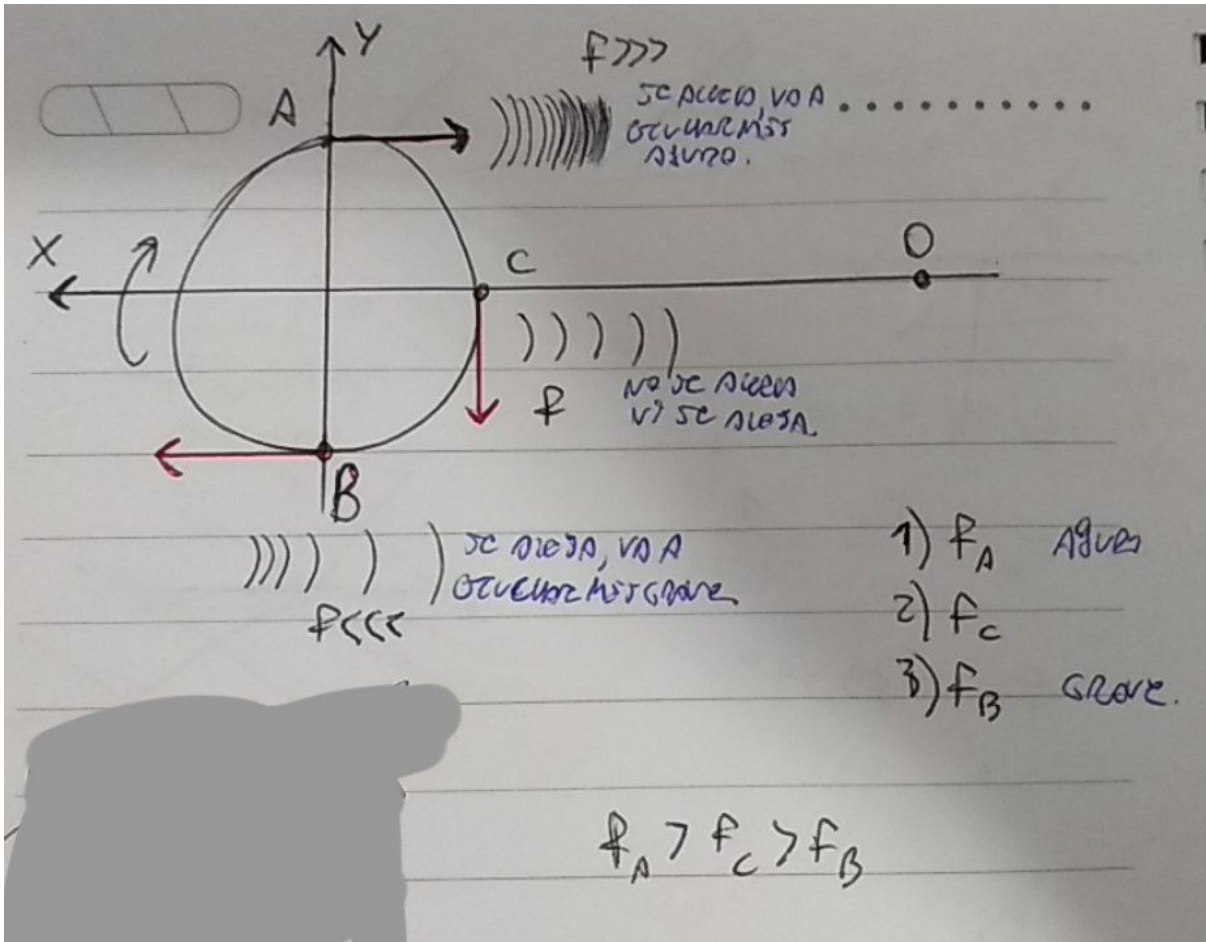 Y
f>>>
A
SE ACERCA, VA A
ESCUCHAR MÁS
AGUDO.
X
C
O
f
NO SE ACERCA
NI SE ALEJA.
B
SE ALEJA, VA A
ESCUCHAR MÁS GRAVE.
f<<<
1) fA AGUDO
2) fC
3) fB GRAVE.
fA > fC > fB